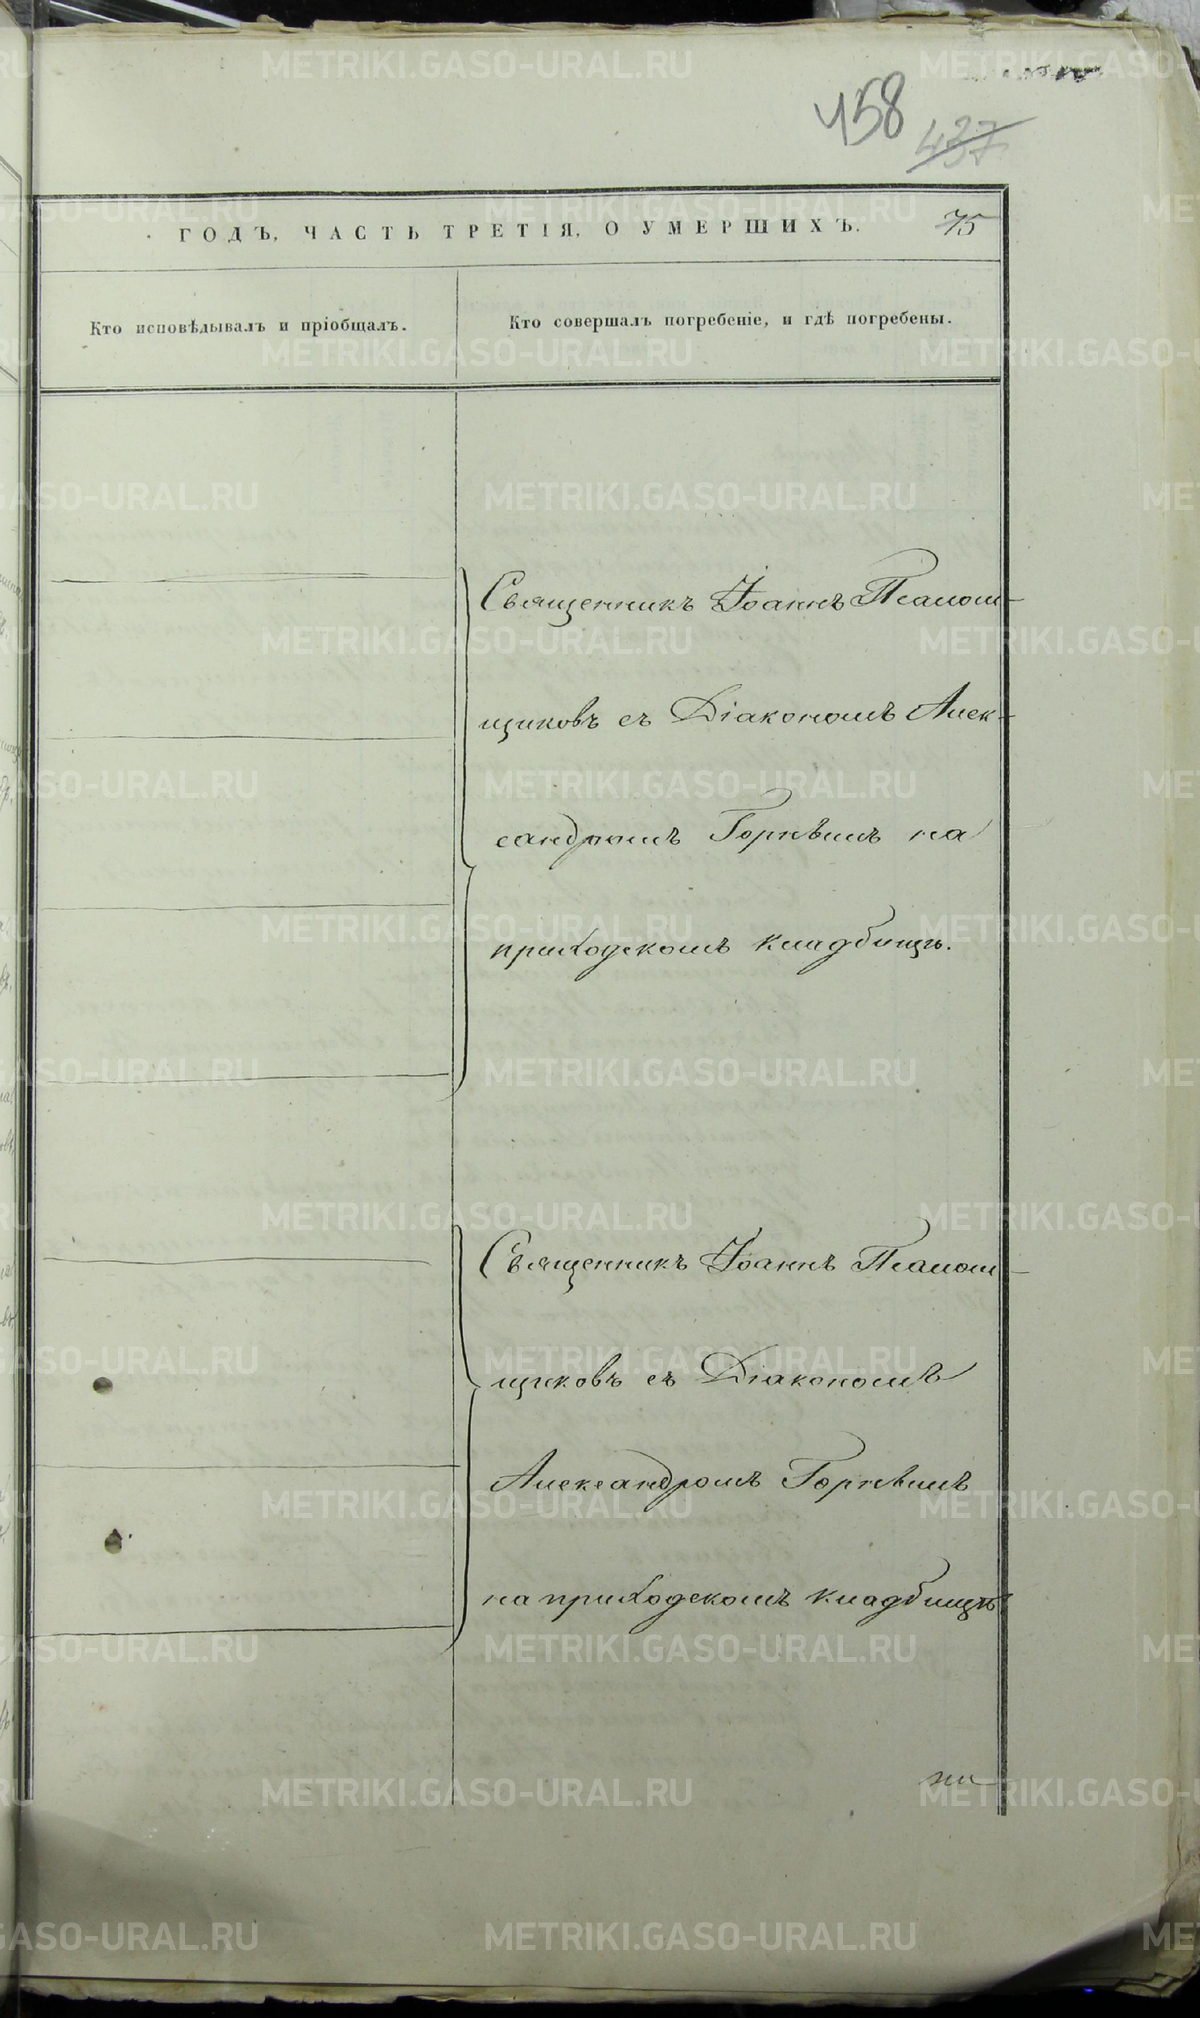 458
437
ГОДЪ, ЧАСТЬ ТРЕТІЯ, О УМЕРШИХЪ.
75
Кто исповѣдывалъ и пріобщалъ.
Кто совершалъ погребеніе, и гдѣ погребены.
Священникъ Іоаннъ Псалом-
щиковъ съ Діакономъ Алек-
сандромъ Горнѣмъ на
приходскомъ кладбищѣ.
Священникъ Іоаннъ Псалом-
щиковъ съ Діакономъ
Александромъ Горнѣмъ
на приходскомъ кладбищѣ
METRIKI.GASO-URAL.RU